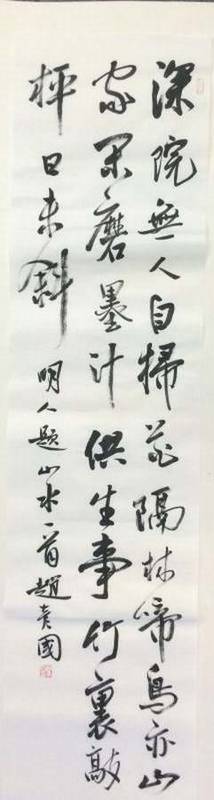 深院無人自掃花隔林啼鳥亦山
家閑磨墨汁供生事竹裏敲
枰日未斜
明人題山水一首趙貴國